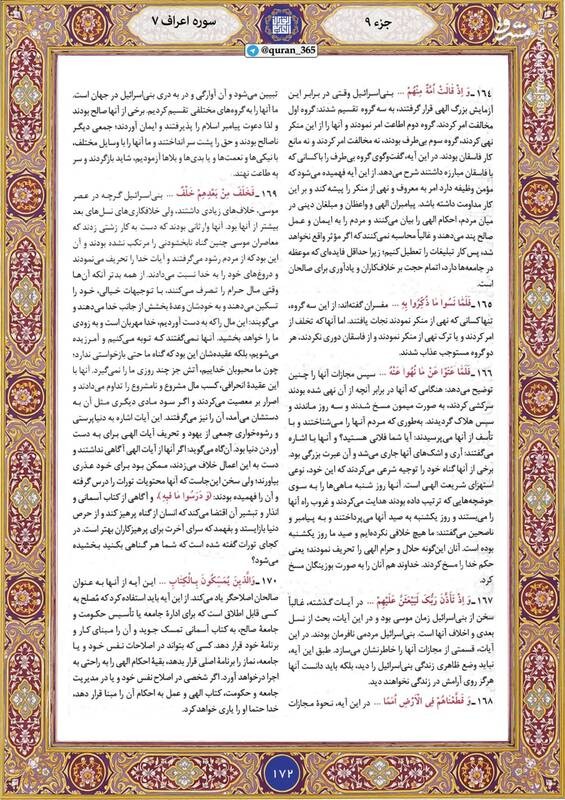 جزء ۹
سوره اعراف ۷
@quran_365
۱۶۴ـ وَ إِذْ قَالَتْ أُمَّةٌ مِنْهُمْ ... بنی‌اسرائیل وقتی در برابر این
آزمایش بزرگ الهی قرار گرفتند، به سه گروه تقسیم شدند: گروه اول
مخالفت کردند. گروه دوم اطاعت امر نمودند و آنها را از این منکر
نهی کردند، گروه سوم بی‌طرف بودند، نه مخالفت امر کردند و نه مانع
کار فاسقان بودند. در این آیه، گفت‌وگوی گروه بی‌طرف را با کسانی که
با فاسقان مبارزه داشتند شرح می‌دهد. از این آیه فهمیده می‌شود که
مؤمن وظیفه دارد امر به معروف و نهی از منکر را پیشه کند و بر این
کار مداومت داشته باشد. پیامبران الهی و واعظان و مبلغان دینی در
میان مردم، احکام الهی را بیان می‌کنند و مردم را به ایمان و عمل
صالح پند می‌دهند و غالباً محاسبه نمی‌کنند که اگر مؤثر واقع نخواهد
شد، پس کار تبلیغات را تعطیل کنیم؛ زیرا حداقل فایده‌ای که موعظه
در جامعه‌ها دارد، اتمام حجت بر خلاف‌کاران و یادآوری برای صالحان
است.
۱۶۵ـ فَلَمَّا نَسُوا مَا ذُكِّرُوا بِهِ ... مفسران گفته‌اند: از این سه گروه،
تنها کسانی که نهی از منکر نمودند نجات یافتند. اما آنها که تخلف از
امر کردند و یا ترک نهی از منکر نمودند و از فاسقان دوری نکردند، هر
دو گروه مستوجب عذاب شدند.
۱۶۶ـ فَلَمَّا عَتَوْا عَنْ مَا نُهُوا عَنْهُ ... سپس مجازات آنها را چنین
توضیح می‌دهد: هنگامی که آنها در برابر آنچه از آن نهی شده بودند
سرکشی کردند، به صورت میمون مسخ شدند و سه روز ماندند و
سپس هلاک گردیدند. به‌طوری که مردم آنها را می‌شناختند و با
تأسف از آنها می‌پرسیدند: آیا شما فلانی هستید؟ و آنها با اشاره
می‌گفتند: آری و اشک‌های آنها جاری می‌شد و آن عبرت بزرگی بود.
برخی از آنها گناه خود را توجیه شرعی می‌کردند که این خود، نوعی
استهزای شریعت الهی است. آنها روز شنبه ماهی‌ها را به سوی
حوضچه‌هایی که ترتیب داده بودند هدایت می‌کردند و غروب راه آنها
را می‌بستند و روز یکشنبه به صید آنها می‌پرداختند و به پیامبر و
ناصحین می‌گفتند: ما هیچ خلافی نکرده‌ایم و صید ما روز یکشنبه
بوده است. آنان این‌گونه حلال و حرام الهی را تحریف نمودند؛ یعنی
حکم خدا را مسخ کردند. خداوند هم آنان را به صورت بوزینگان مسخ
کرد.
۱۶۷ـ وَ إِذْ تَأَذَّنَ رَبُّكَ لَيَبْعَثَنَّ عَلَيْهِمْ ... در آیات گذشته، غالباً
سخن از بنی‌اسرائیل زمان موسی بود و در این آیات، بحث از نسل
بعدی و اخلاف آنها است. بنی‌اسرائیل مردمی نافرمان بودند. در این
آیات، قسمتی از مجازات آنها را خاطرنشان می‌سازد. طبق این آیه،
نباید وضع ظاهری زندگی بنی‌اسرائیل را دید، بلکه باید دانست آنها
هرگز روی آرامش در زندگی نخواهند دید.
۱۶۸ـ وَ قَطَّعْنَاهُمْ فِي الْأَرْضِ أُمَمًا ... در این آیه، نحوهٔ مجازات
تبیین می‌شود و آن آوارگی و در به دری بنی‌اسرائیل در جهان است.
ما آنها را به گروه‌های مختلفی تقسیم کردیم. برخی از آنها صالح بودند
و لذا دعوت پیامبر اسلام را پذیرفتند و ایمان آوردند؛ جمعی دیگر
ناصالح بودند و حق را پشت سر انداختند و ما آنها را با وسایل مختلف،
با نیکی‌ها و نعمت‌ها و یا بدی‌ها و بلاها آزمودیم، شاید بازگردند و سر
به طاعت نهند.
۱۶۹ـ فَخَلَفَ مِنْ بَعْدِهِمْ خَلْفٌ ... بنی‌اسرائیل گرچه در عصر
موسی، خلاف‌های زیادی داشتند، ولی خلافکاری‌های نسل‌های بعد
بیشتر از آنها بود. آنها وارثانی بودند که دست به کار زشتی زدند که
معاصران موسی چنین گناه نابخشودنی را مرتکب نشده بودند و آن
این بود که از مردم رشوه می‌گرفتند و آیات خدا را تحریف می‌نمودند
و دروغ‌های خود را به خدا نسبت می‌دادند. از همه بدتر آنکه آن‌ها
وقتی مال حرام را تصرف می‌کنند، با توجیهات خیالی، خود را
تسکین می‌دهند و به خودشان وعدهٔ بخشش از جانب خدا می‌دهند و
می‌گویند: این مال را که به دست آوردیم، خدا مهربان است و به زودی
ما را خواهد بخشید. آنها نمی‌گفتند که توبه می‌کنیم و آمرزیده
می‌شویم، بلکه عقیده‌شان این بود که گناه ما حتی بازخواستی ندارد؛
چون ما محبوبان خداییم، آتش جز چند روزی ما را نمی‌گیرد. آنها با
این عقیدهٔ انحرافی، کسب مال مشروع و نامشروع را تداوم می‌دادند و
اصرار بر معصیت می‌کردند و اگر سود مادی دیگری مثل آن به
دستشان می‌آمد، آن را نیز می‌گرفتند. این آیات اشاره به دنیاپرستی
و رشوه‌خواری جمعی از یهود و تحریف آیات الهی برای به دست
آوردن دنیا بود. آن‌گاه می‌گوید: اگر آنها از آیات الهی آگاهی نداشتند و
دست به این اعمال خلاف می‌زدند، ممکن بود برای خود عذری
بیاورند؛ ولی سخن این‌جاست که آنها محتویات تورات را درس گرفته
و آن را فهمیده بودند: (وَ دَرَسُوا مَا فِيهِ). و آگاهی از کتاب آسمانی و
انذار و تبشیر آن اقتضا می‌کند که انسان از گناه پرهیز کند و از حرص
دنیا بازایستد و بفهمد که سرای آخرت برای پرهیزکاران بهتر است. در
کجای تورات گفته شده است که شما هر گناهی بکنید بخشیده
می‌شود؟
۱۷۰ـ وَالَّذِينَ يُمَسِّكُونَ بِالْكِتَابِ ... این آیه از آنها به عنوان
صالحان اصلاحگر یاد می‌کند. از این آیه باید استفاده کرد که مُصلح به
کسی قابل اطلاق است که برای ادارهٔ جامعه یا تأسیس حکومت و
جامعهٔ صالح، به کتاب آسمانی تمسک جوید و آن را مبنای کار و
برنامهٔ خود قرار دهد. کسی که بتواند در اصلاحات نفس خود و یا
جامعه، نماز را برنامهٔ اصلی قرار بدهد، بقیهٔ احکام الهی را به راحتی به
اجرا درخواهد آورد. اگر شخصی در اصلاح نفس خود و یا در مدیریت
جامعه و حکومت، کتاب الهی و عمل به احکام آن را مبنا قرار دهد،
خدا حتما او را یاری خواهد کرد.
۱۷۲